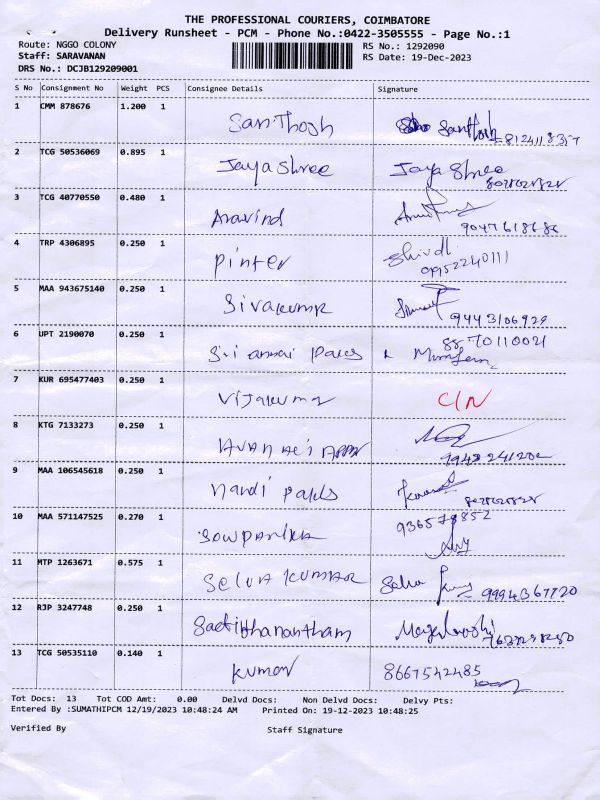 THE PROFESSIONAL COURIERS, COIMBATORE
Delivery Runsheet - PCM - Phone No.:0422-3505555 - Page No.:1
Route: NGGO COLONY
RS No.: 1292090
Staff: SARAVANAN
RS Date: 19-Dec-2023
DRS No.: DCJB129209001
S No Consignment No Weight PCS Consignee Details Signature
1 CMM 878676 1.200 1 Santhosh Santhosh
2 TCG 50536069 0.895 1 Jaya Shree Jaya Shree
3 TCG 40770550 0.480 1 Aravind
9047618686
4 TRP 4306895 0.250 1 Pinter
5 MAA 943675140 0.250 1 Sivakumr
9443106929
6 UPT 2190070 0.250 1 Sri annai Paks 8870110021
7 KUR 695477403 0.250 1 Vijakumr C/N
8 KTG 7133273 0.250 1
9 MAA 106545618 0.250 1 Nandi Paks
10 MAA 571147525 0.270 1 Sowparnika 936578852
11 MTP 1263671 0.575 1 Selva Kumar Selva
9994367720
12 RJP 3247748 0.250 1
13 TCG 50535110 0.140 1 Kumar 8667542485
Tot Docs: 13 Tot COD Amt: 0.00 Delvd Docs: Non Delvd Docs: Delvy Pts:
Entered By :SUMATHIPCM 12/19/2023 10:48:24 AM Printed On: 19-12-2023 10:48:25
Verified By Staff Signature